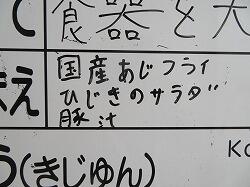 て 食器を大
まえ
国産あじフライ
ひじきのサラダ
豚汁
う(きじゅん)
KC